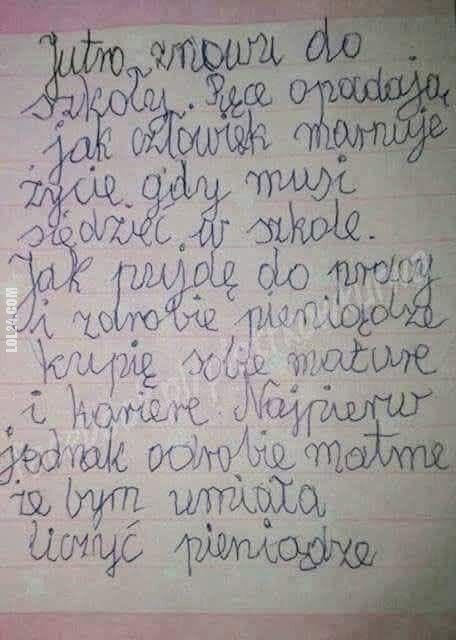 Jutro znowu do
szkoły. Ręce opadają
jak człowiek marnuje
życie gdy musi
siędzieć w szkole.
Jak pujdę do pracy
i zdrobie pieniądze
kupię sobie mature
i kariere. Najpierw
jednak odrobie matme
że bym umiała
liczyć pieniądze
LOL24.COM